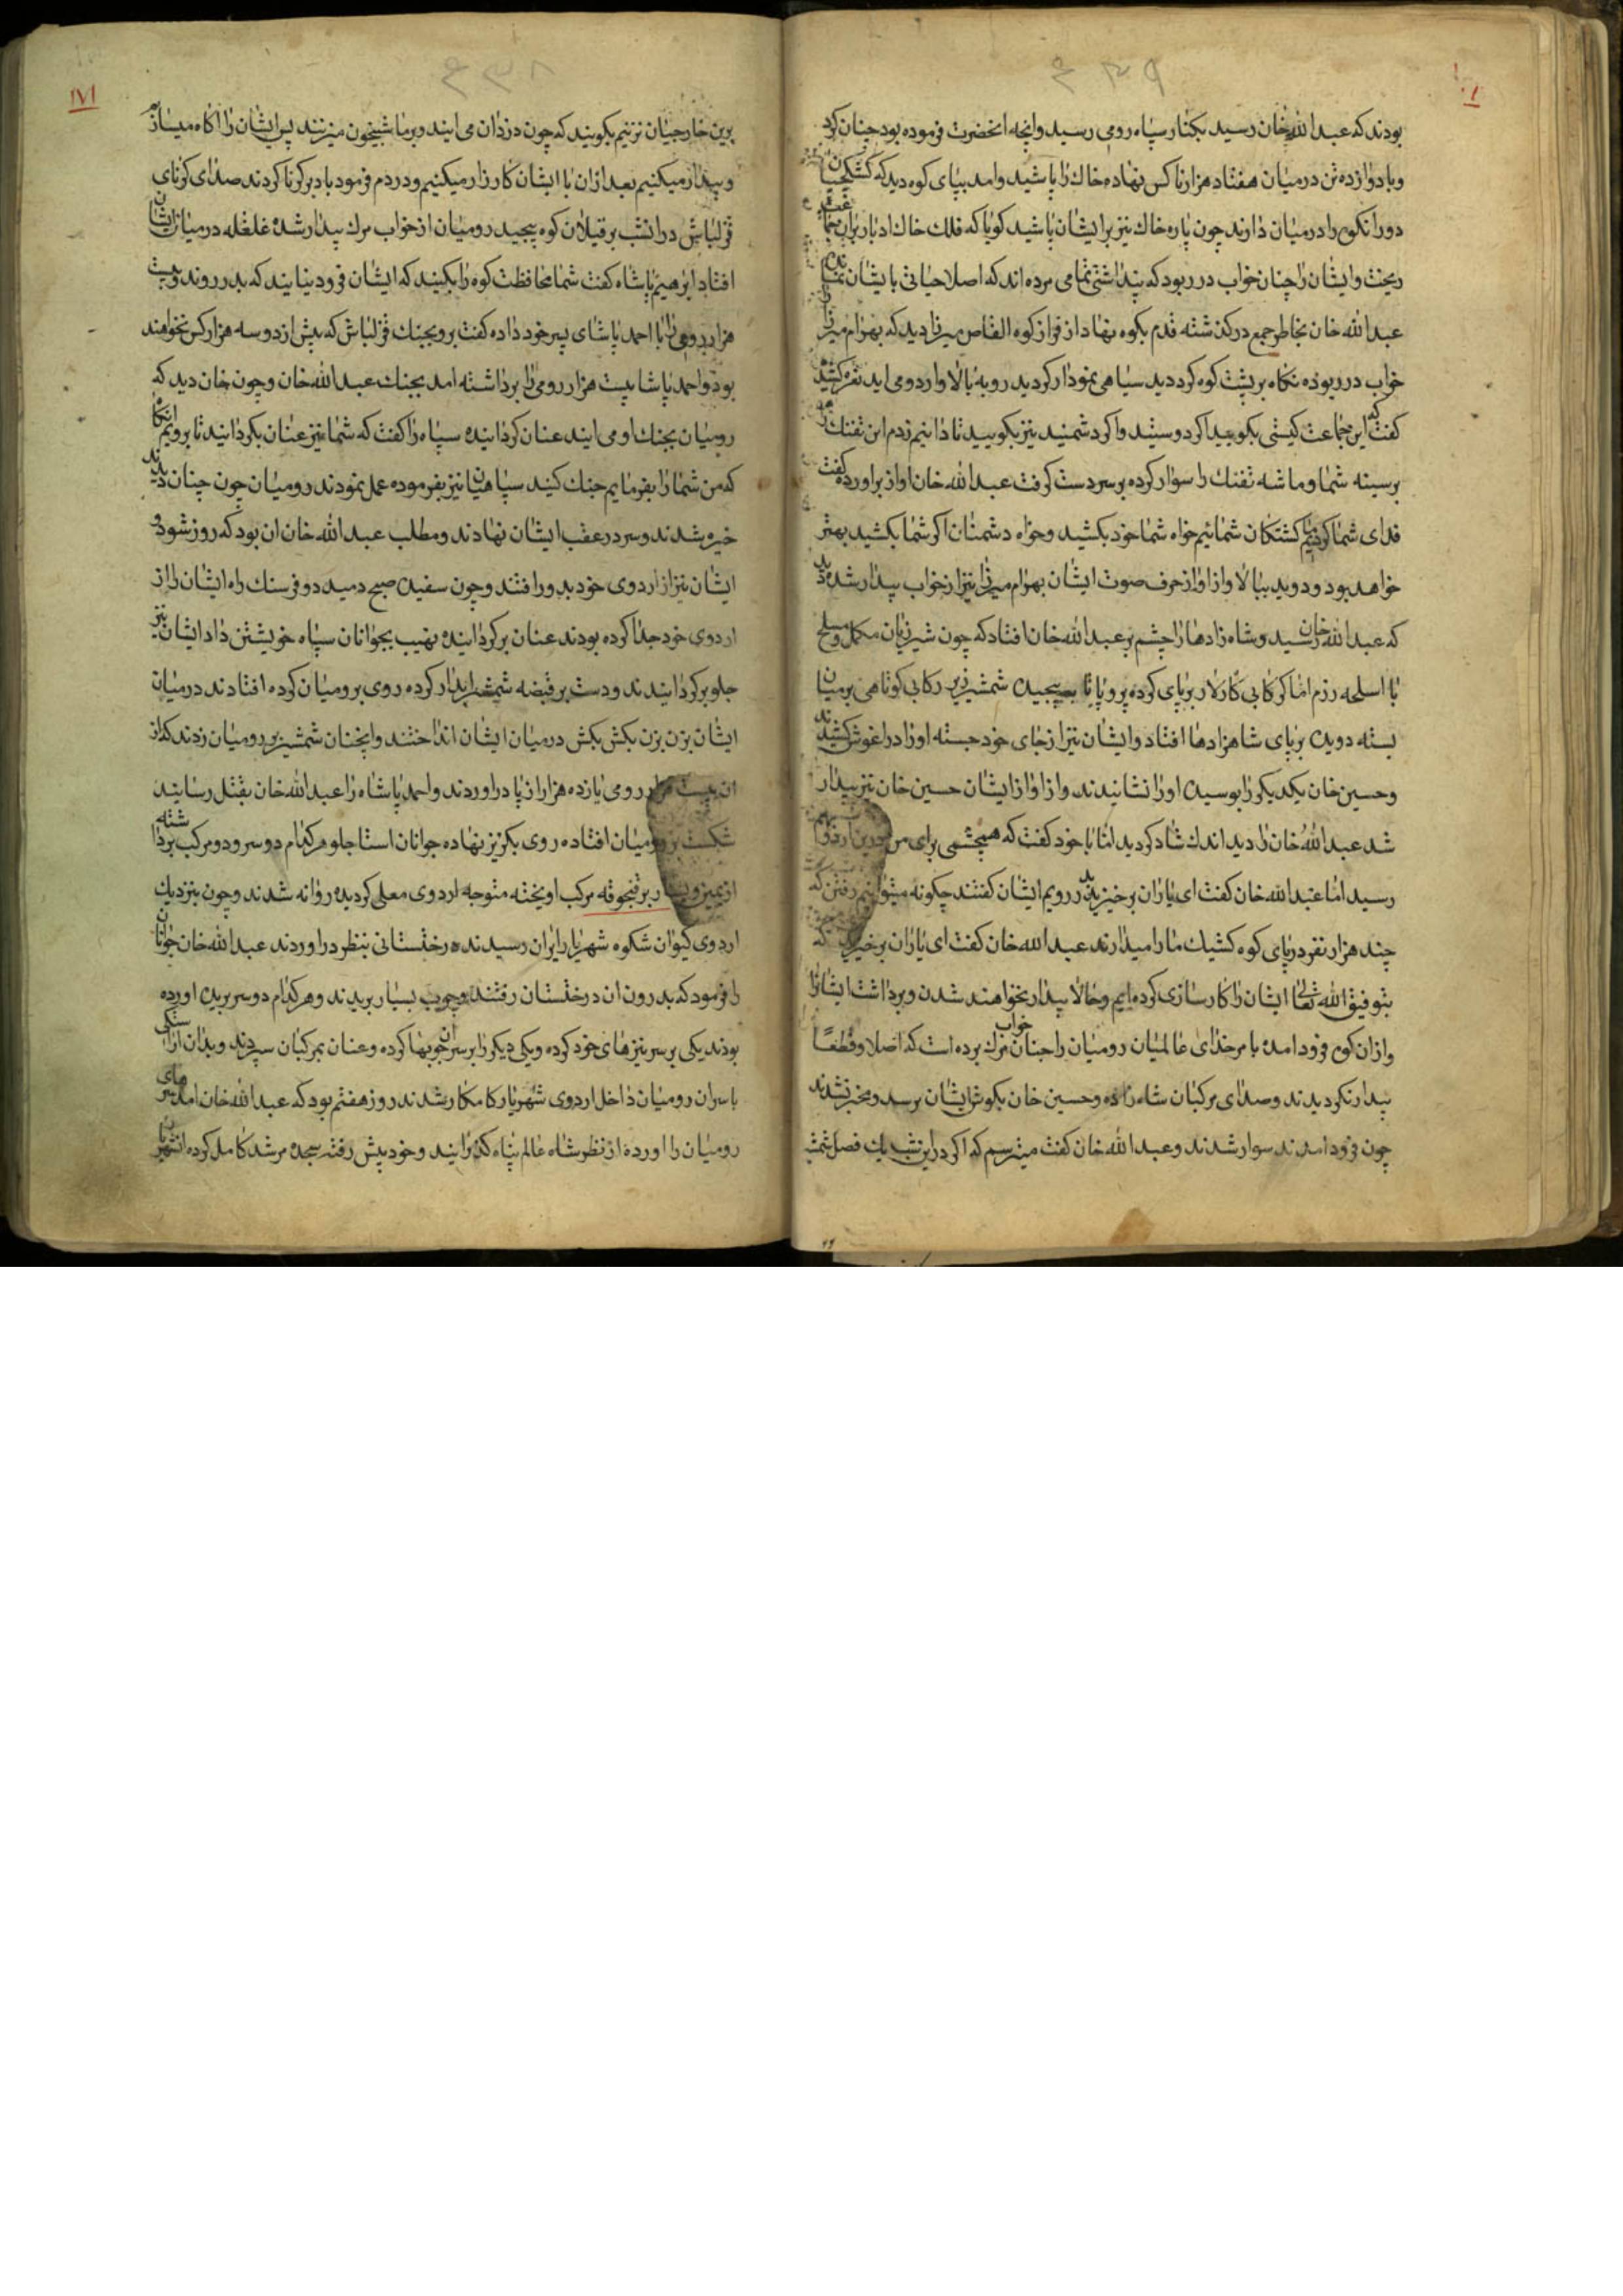 ۴۳۹
بودند که عبد الله خان رسید بکنار سپاه رومی رسید وانچه انحضرت فرموده بود چنان کرد
وبا دوازده تن درمیان هفتاد هزار ناکس نهاده خاک را پاشید وامد بپای کوه دید که کشکچیان
دور انکوه را درمیان دارند چون پاره خاک نیز بر ایشان پاشید کویا که فلک خاک ادبار بران
ریخت وایشان را چنان خواب در ربود که پنداشتی تمامی مرده اند که اصلا حیاتی با یشان نمانده
عبد الله خان بخاطر جمع درکذشته قدم بکوه نهاد از فراز کوه القاص میرزا دید که بهرام میرزا را
خواب در ربوده نکاه بر پشت کوه کرد دید سیاهی نمودار کردید رو به بالا وارد و می اید نعره کشید
کفت که این جماعت کیستی بکویید اکر دوستید واکر دشمنید نیز بکویید تا دانیم زدم این تفنک را
بر سینه شما وماشه تفنک را سوار کرده بر سر دست کرفت عبد الله خان اواز براورده کفت
فدای شما کردیم ما کشتکان شمائیم خواه شما خود بکشید وخواه دشمنان اکر شما بکشید بهتر
خواهد بود ودوید ببالا واز اواز حرف صوت ایشان بهرام میرزا نیز از خواب بیدار شده دید
که عبد الله خان رسید وشاه زادها را چشم بر عبد الله خان افتاد که چون شیر زیان مکمل ومسلح
با اسلحه رزم اما کرکابی کارلار بر پای کرده پرو پا تا به پیچیده شمشیر زیر رکابی کوتاهی بر میان
بسته دویده بر پای شاهزادها افتاد وایشان نیز از جای خود جسته اورا در اغوش کشیدند
وحسین خان یکدیکر را بوسیده اورا نشانیدند واز اواز ایشان حسین خان نیز بیدار
شد عبد الله خان را دید اندک شاد کردید اما با خود کفت که همچشمی برای من درین اردو
رسید اما عبد الله خان کفت ای یاران برخیزید در رویم ایشان کفتند چکونه میتوانیم رفتن که
چند هزار نفر در پای کوه کشیک ما را میدارند عبد الله خان کفت ای یاران برخیزید که
بتوفیق الله تعالی ایشان را کارسازی کرده ایم وحالا بیدار نخواهند شدن وبرداشت ایشانرا
وازان کوه فرود امده بامر خدای عالمیان رومیان را چنان خواب مرک برده است که اصلا وقطعًا
بیدار نکردیدند وصدای مرکبان شاه زاده وحسین خان بکوش ایشان نرسد ومخبر نشدند
چون فرود امدند سوار شدند وعبد الله خان کفت میترسم که اکر درین شب یک فصل شمشیر
۴۳۸
١٧١
برین خارجیان نزنیم بکویند که چون دزدان می ایند وبر ما شبیخون میزنند پس ایشان را اکاه میسازم
وبیدار میکنیم بعد ازان با ایشان کارزار میکنیم ودردم فرمود باد بر کرنا کردند صدای کرنای
قزلباش درانشب بر قیلان کوه پیچید رومیان از خواب مرک بیدار شده غلغله درمیان ایشان
افتاد ابرهیم پاشاه کفت شما محافظت کوه را بکنید که ایشان فرود نیایند که بدر روند وبیست
هزار رومی را با احمد پاشای پسر خود داده کفت برو بجنک قزلباش که بیش از دو سه هزار کس نخواهند
بود واحمد پاشا بیست هزار رومی را برداشته امد بجنک عبد الله خان وچون خان دید که
رومیان بجنک او می ایند عنان کردانیده سپاه را کفت که شما نیز عنان بکردانید تا برویم انکاه
که من شما را بفرمایم جنک کنید سپاهیان نیز بفرموده عمل نمودند رومیان چون چنان دیدند
خیره شدند وسر در عقب ایشان نهادند ومطلب عبد الله خان ان بود که روز شود و
ایشان نیز از اردوی خود بدور افتند وچون سفیده صبح دمید دو فرسنک راه ایشان را از
اردوی خود جدا کرده بودند عنان برکردانیده نهیب بجوانان سپاه خویشتن داد ایشان نیز
جلو برکردانیدند ودست بر قبضه شمشیر ابدار کرده روی برومیان کرده افتادند درمیان
ایشان بزن بزن بکش بکش درمیان ایشان انداختند وانچنان شمشیر بر رومیان زدند که از
ان بیست هزار رومی یازده هزار از پا دراوردند واحمد پاشاه را عبد الله خان بقتل رسانید
شکست بر رومیان افتاده روی بکریز نهاده جوانان استاجلو هر کدام دو سر ودو مرکب برداشته
بر قنجوقه مرکب اویخته متوجه اردوی معلی کردیده روانه شدند وچون بنزدیک
اردوی کیوان شکوه شهریار ایران رسیدند درختستانی بنظر دراوردند عبد الله خان جوانان
را فرمود که بدرون ان درختستان رفتند وچوب بسیار بریدند وهر کدام دو سر بریده اورده
بودند یکی بر سر نیزهای خود کرده ویکی دیکر را بر سر ان چوبها کرده وعنان بمرکبان سپردند
با سران رومیان داخل اردوی شهریار کامکار شدند روز هفتم بود که عبد الله خان امد سرهای
رومیان را اورده از نظر شاه عالم پناه کذرانید وخود پیش رفته سجده مرشد کامل کرده